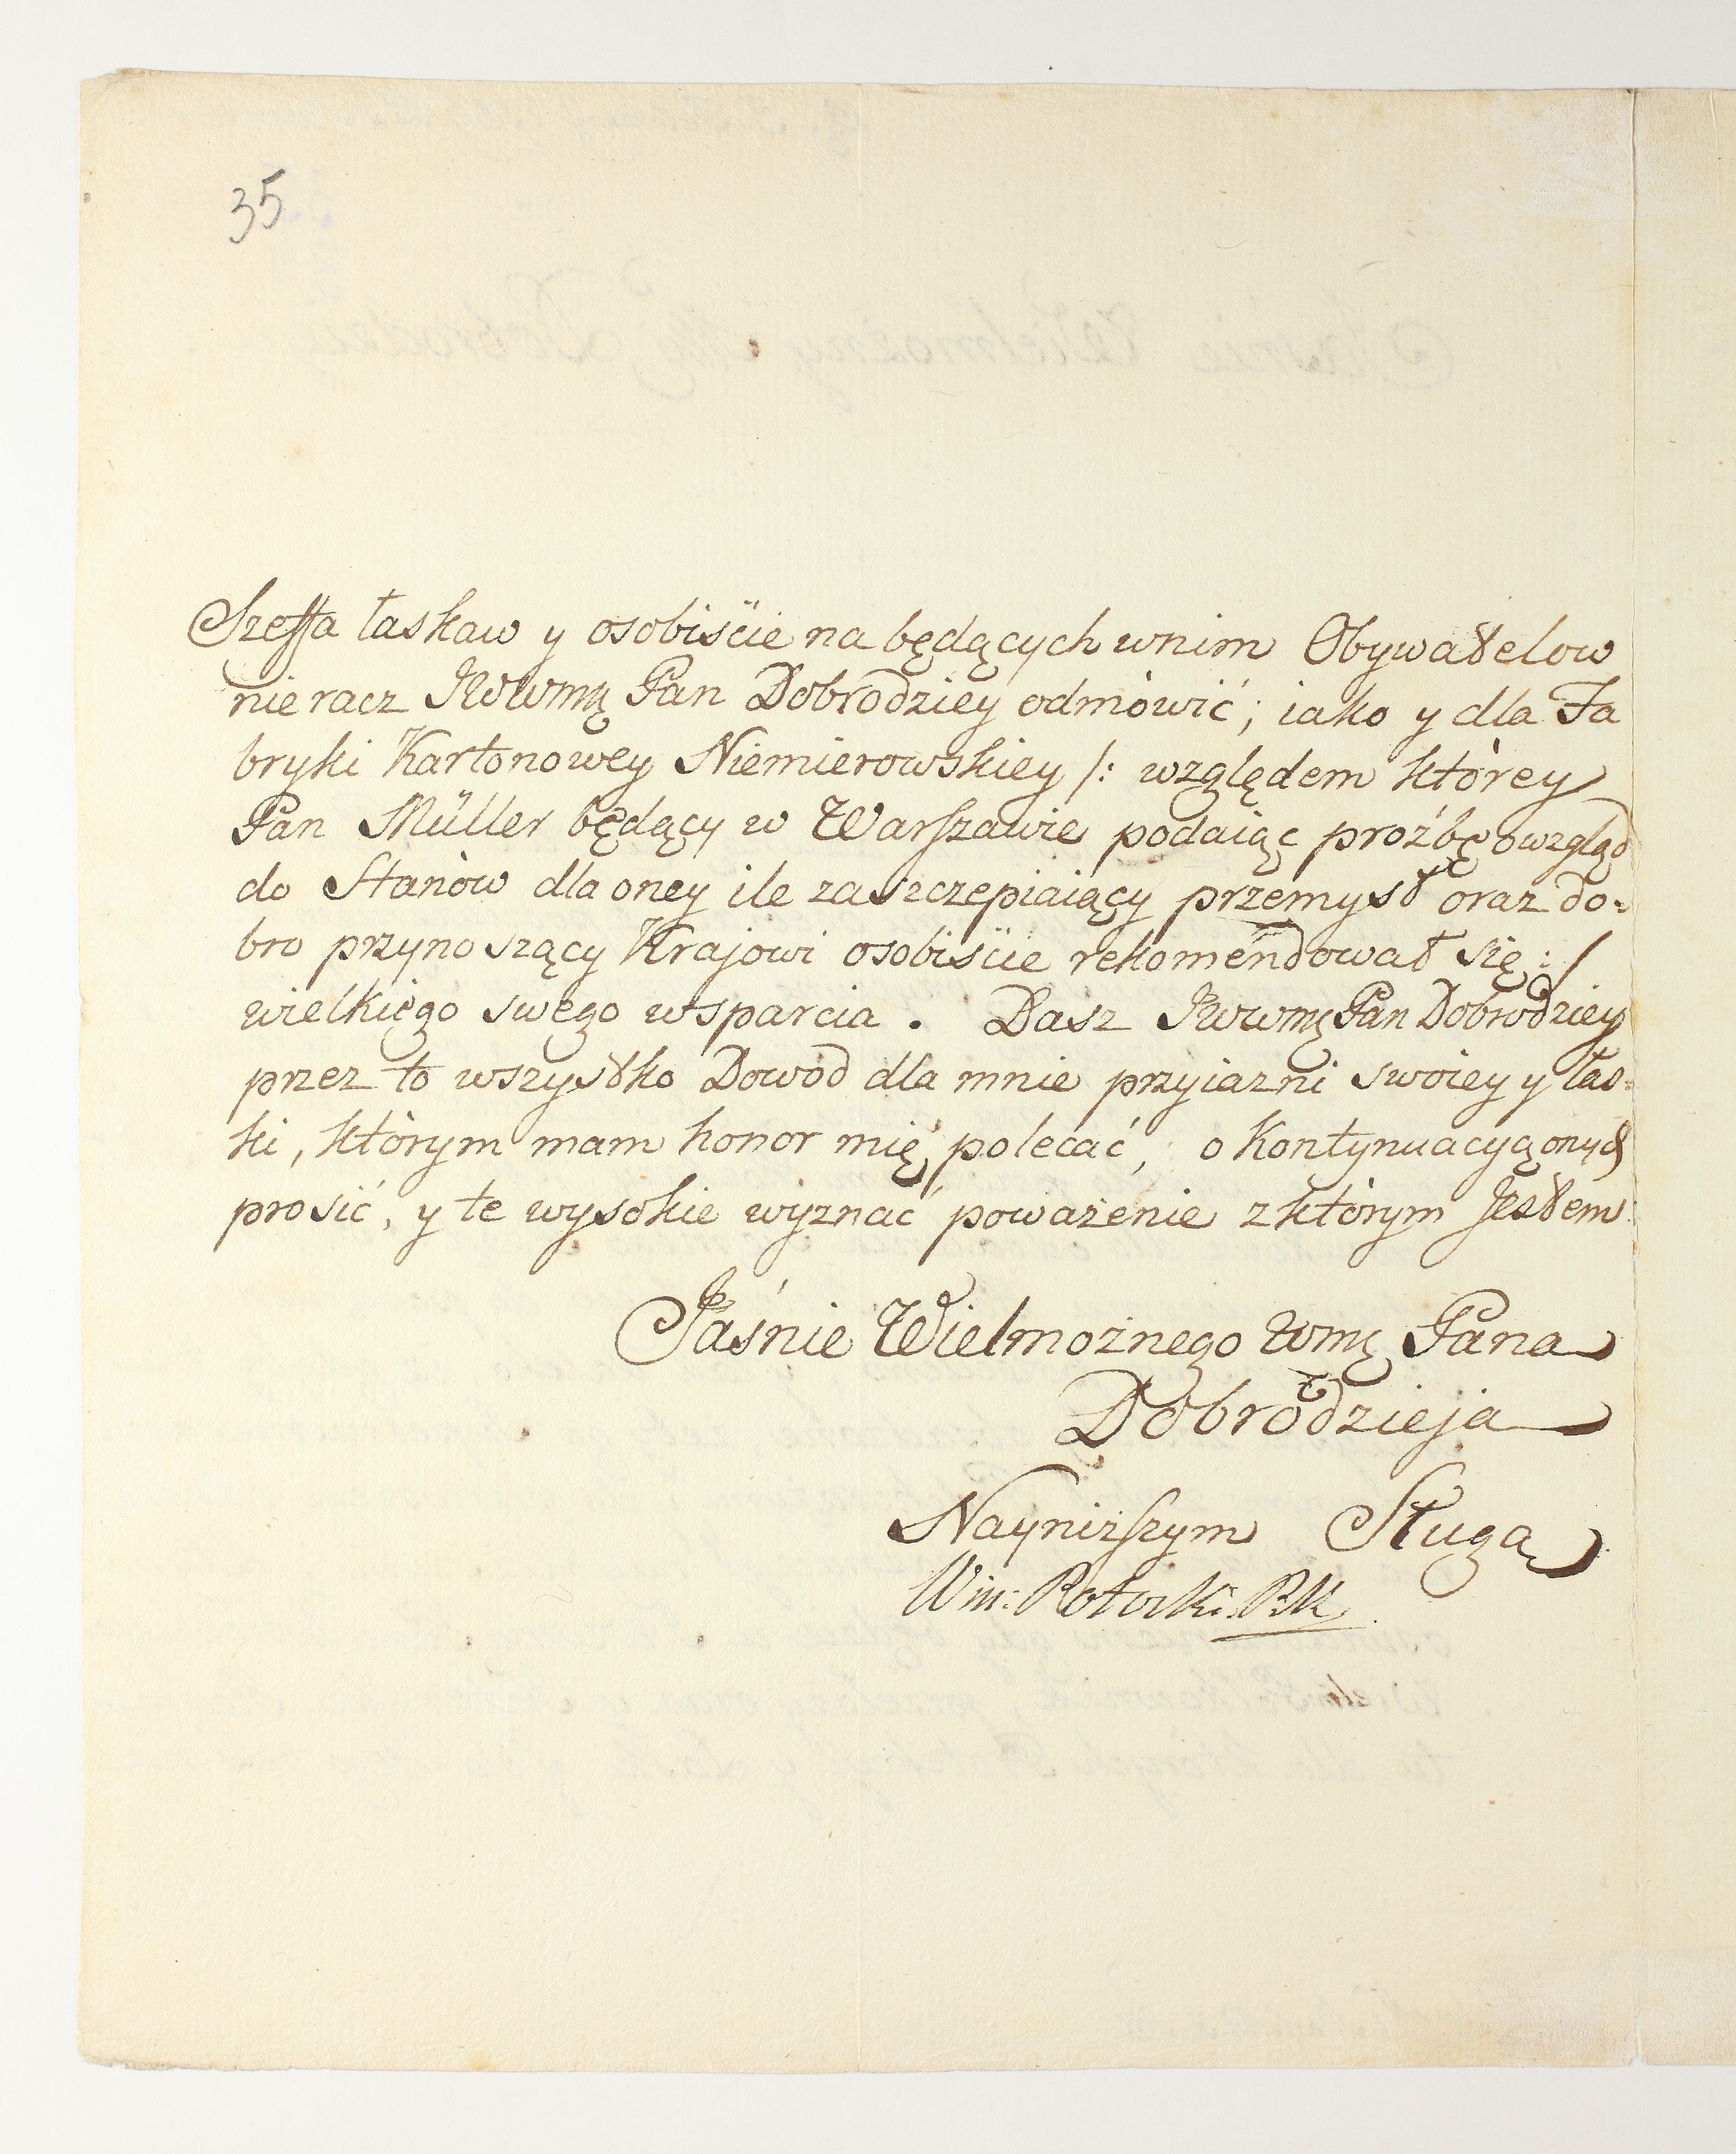 35
Szeffa łaskaw y osobiście na będących wnim Obywatelow
nie racz JWWmę Pan Dobrodziey odmówić; iako y dla Fa
bryki Kartonowey Niemierowskiey /: względem którey
Pan Müller będący w Warszawie podaiąc proźbę owzgląd
do Stanów dla oney ile zaszczepiaiący przemysł oraz do=
bro przynoszący Krajowi osobiście rekomendował się :/
wielkiego swego wsparcia. Dasz JWWmę Pan Dobrodziey
przez to wszystko Dowód dla mnie przyiazni swoiey y łas=
ki, którym mam honor mię polecać, o Kontynuacyą onych
prosić, y te wysokie wyznać poważenie z którym Jestem
Jaśnie Wielmożnego Wmę Pana
Dobrodzieja
Nayniższym Sługą
Win: Potocki